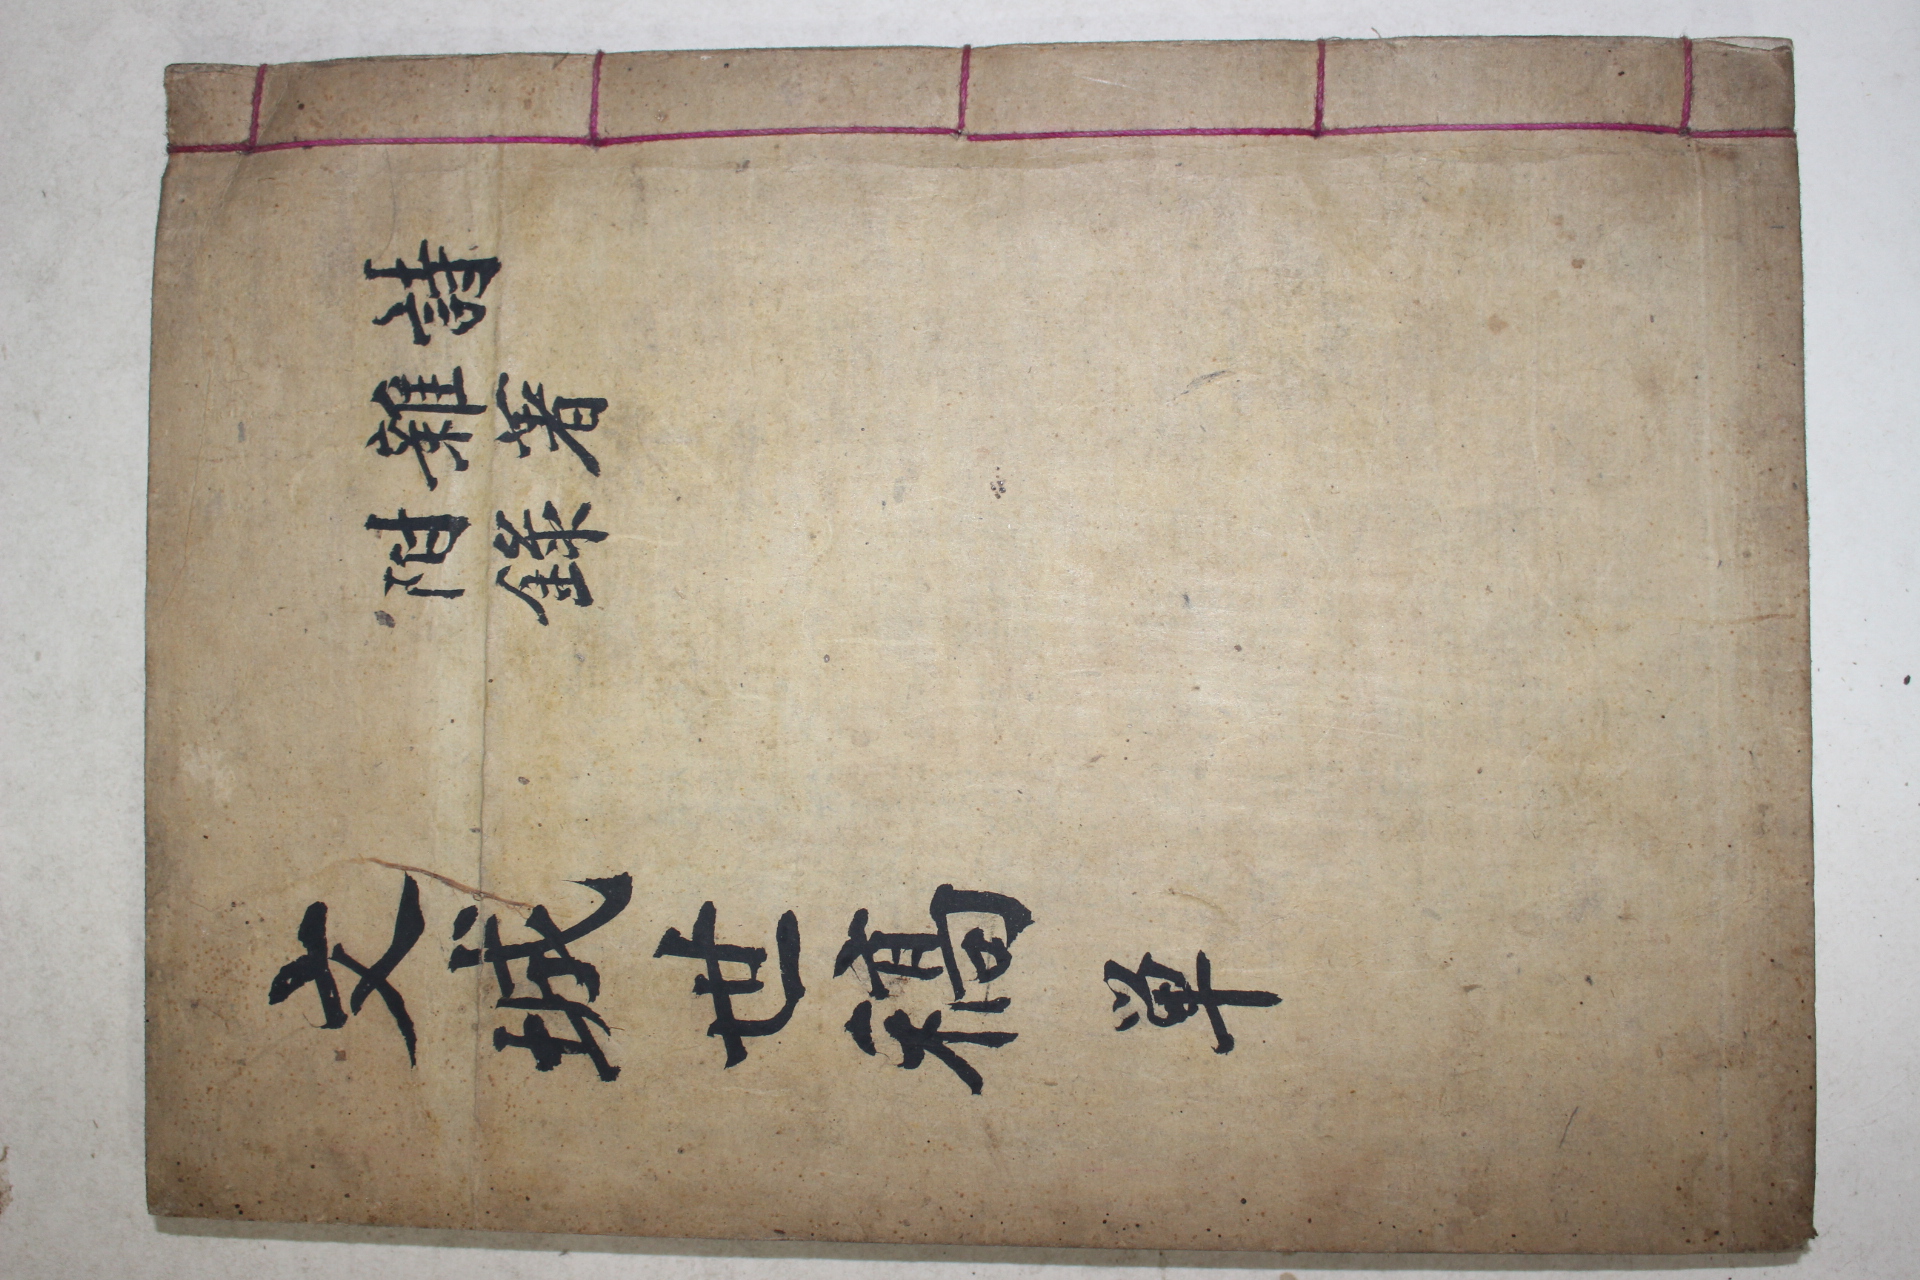 詩
雜著
附錄
文城世稿 単